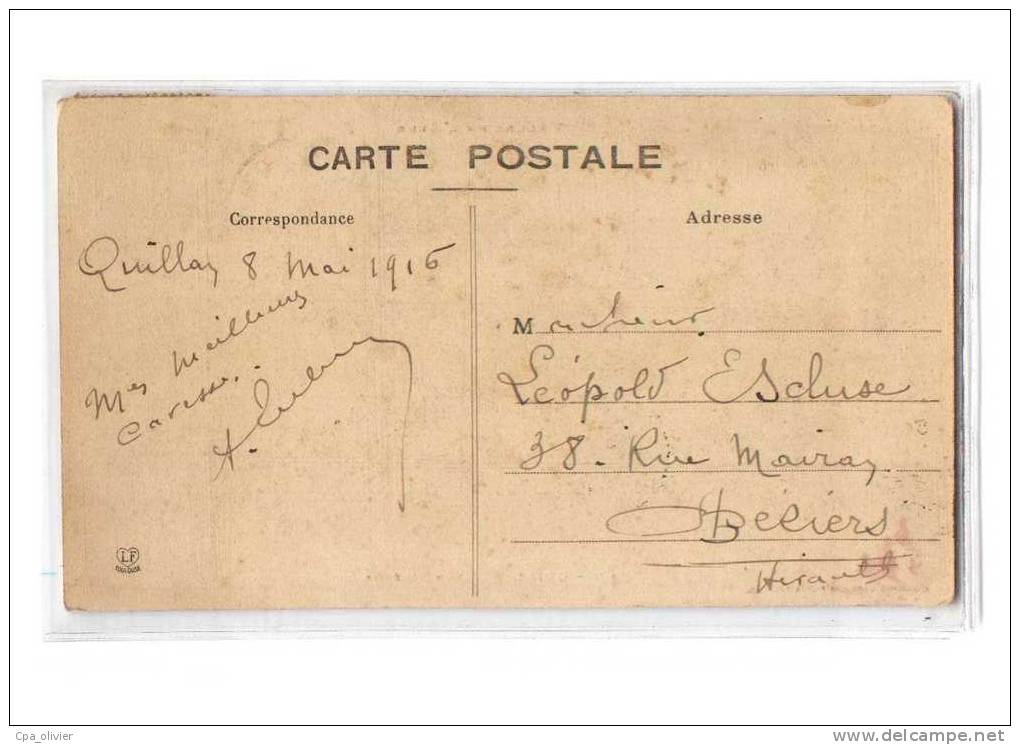 CARTE POSTALE
Correspondance
Quillan 8 Mai 1916
Mes Meilleures
Caresses.
A.
LF
TOULOUSE
Adresse
Monsieur
Léopold Escluse
38. Rue Mairan
Béziers
Hérault
Cpa_olivier
www.delcampe.net